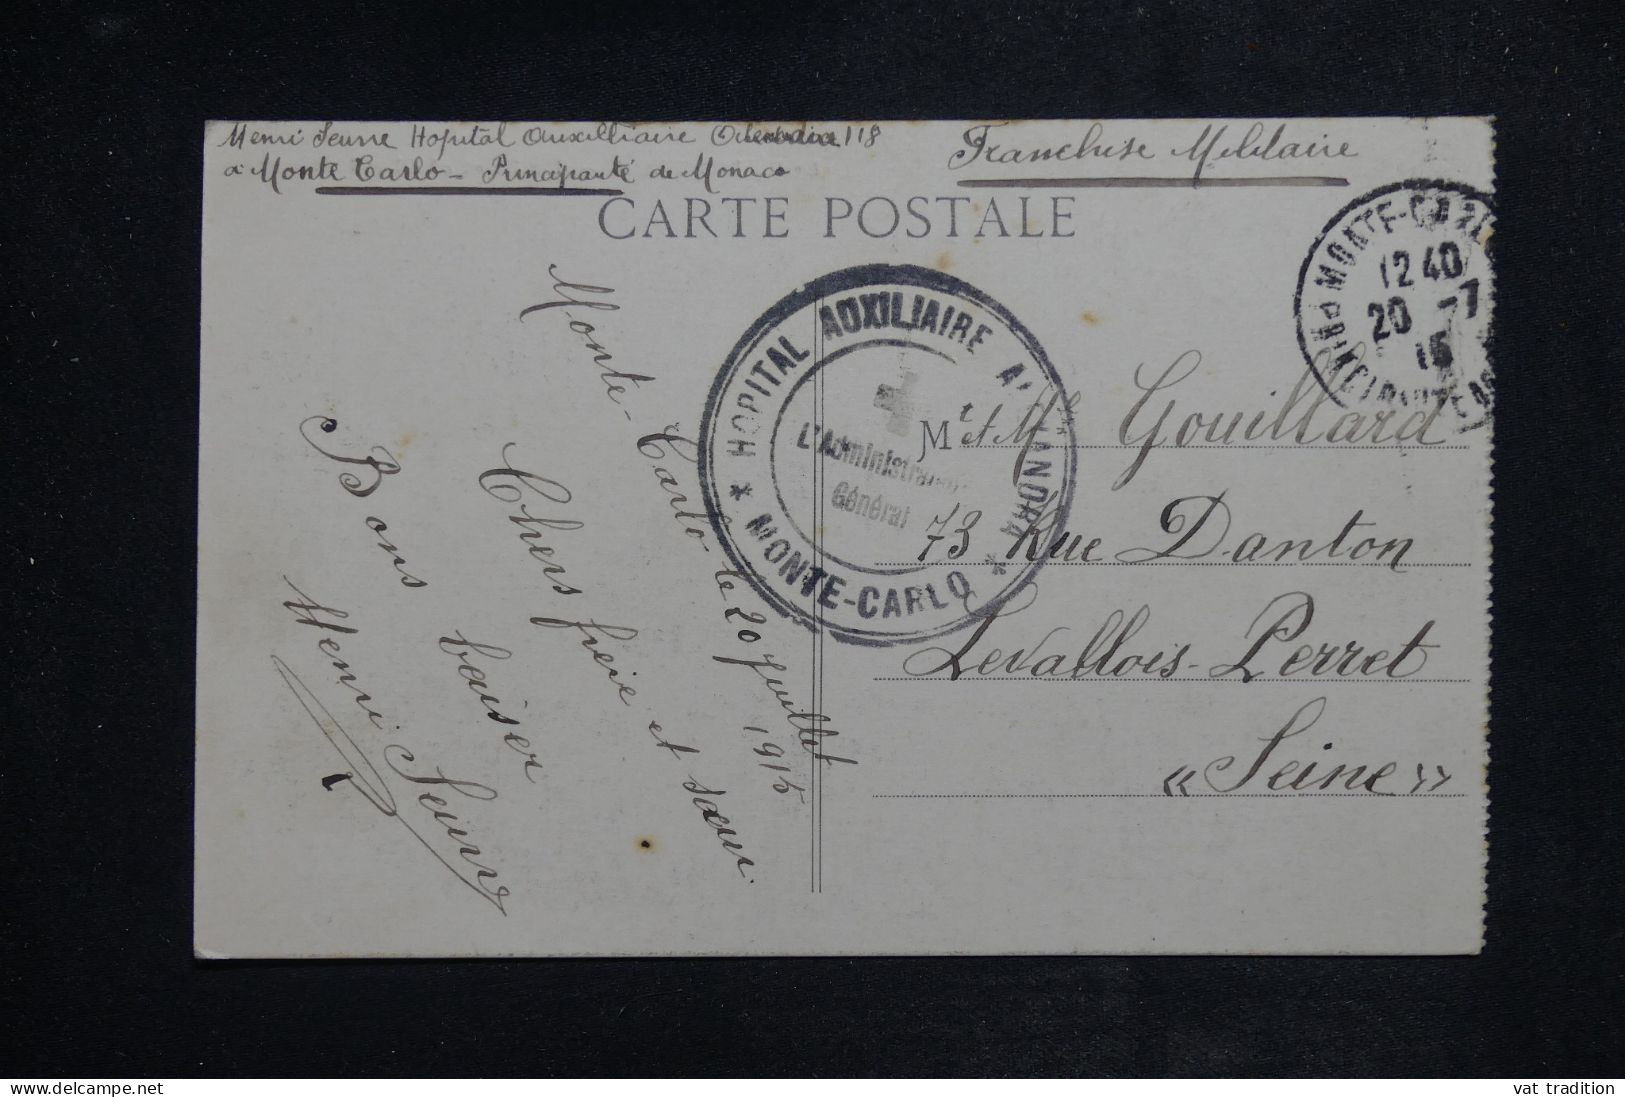 Henri Seurre Hopital Auxilliaire 118
à Monte Carlo - Principauté de Monaco
Franchise Militaire
CARTE POSTALE
MONTE-CARLO
12 40
20 -7
15
HOPITAL AUXILIAIRE A' ANDRA
L'Administrateur
Général
* MONTE-CARLO *
Monte-Carlo le 20 Juillet 1915
Chers frère et sœur
Bons baiser
Henri Seurre
Mr et Me Gouillard
73 Rue Danton
Levallois-Perret
«Seine»
www.delcampe.net
vat tradition